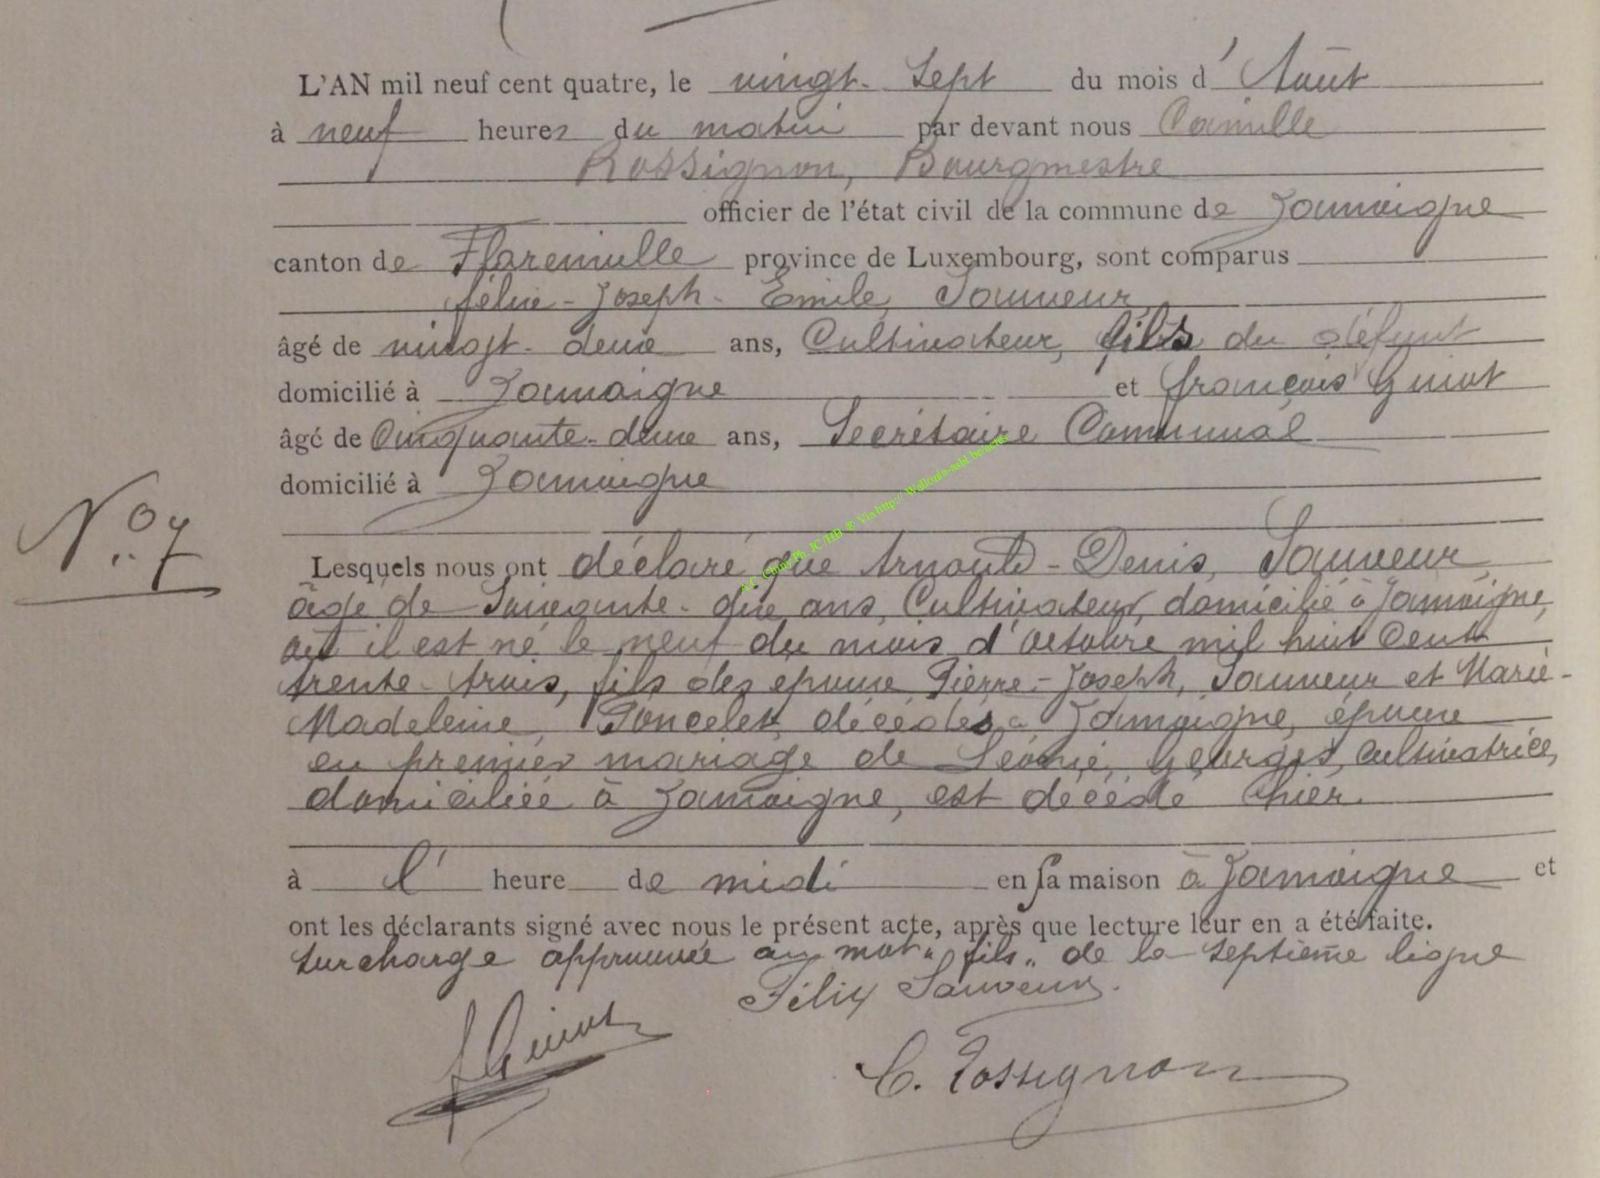 L'AN mil neuf cent quatre, le vingt-sept du mois d'Août
à neuf heures du matin par devant nous Camille
Rossignon, Bourgmestre
officier de l'état civil de la commune de Jamoigne
canton de Florenville province de Luxembourg, sont comparus
félix-Joseph-Emile, Sauveur
âgé de vingt-deux ans, Cultivateur, fils du défunt
domicilié à Jamoigne et françois Guiot
âgé de Cinquante-deux ans, Secrétaire Communal
domicilié à Jamoigne
N° 7
Lesquels nous ont déclaré que Arnould-Denis, Sauveur
âgé de Soixante-dix ans, Cultivateur, domicilié à Jamoigne,
où il est né le neuf du mois d'octobre mil huit Cent
trente-trois, fils des époux Pierre-Joseph, Sauveur et Marie-
Madeleine, Poncelet, décédés à Jamoigne, époux
en premier mariage de Léonie, Georges, cultivatrice,
domiciliée à Jamoigne, est décédé hier.
à l' heure de midi en sa maison à Jamoigne et
ont les déclarants signé avec nous le présent acte, après que lecture leur en a été faite.
surcharge approuvée au mot "fils" de la septième ligne
Félix Sauveur.
f Guiot
C. Rossignon